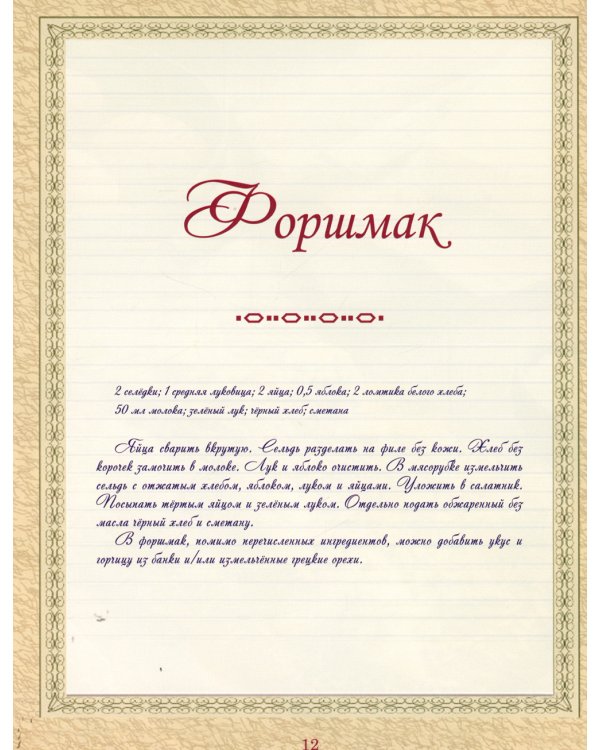 Форшмак
2 селёдки; 1 средняя луковица; 2 яйца; 0,5 яблока; 2 ломтика белого хлеба;
50 мл молока; зелёный лук; чёрный хлеб; сметана
Яйца сварить вкрутую. Сельдь разделать на филе без кожи. Хлеб без
корочек замочить в молоке. Лук и яблоко очистить. В мясорубке измельчить
сельдь с отжатым хлебом, яблоком, луком и яйцами. Уложить в салатник.
Посыпать тёртым яйцом и зелёным луком. Отдельно подать обжаренный без
масла чёрный хлеб и сметану.
В форшмак, помимо перечисленных ингредиентов, можно добавить уксус и
горчицу из банки и/или измельчённые грецкие орехи.
12